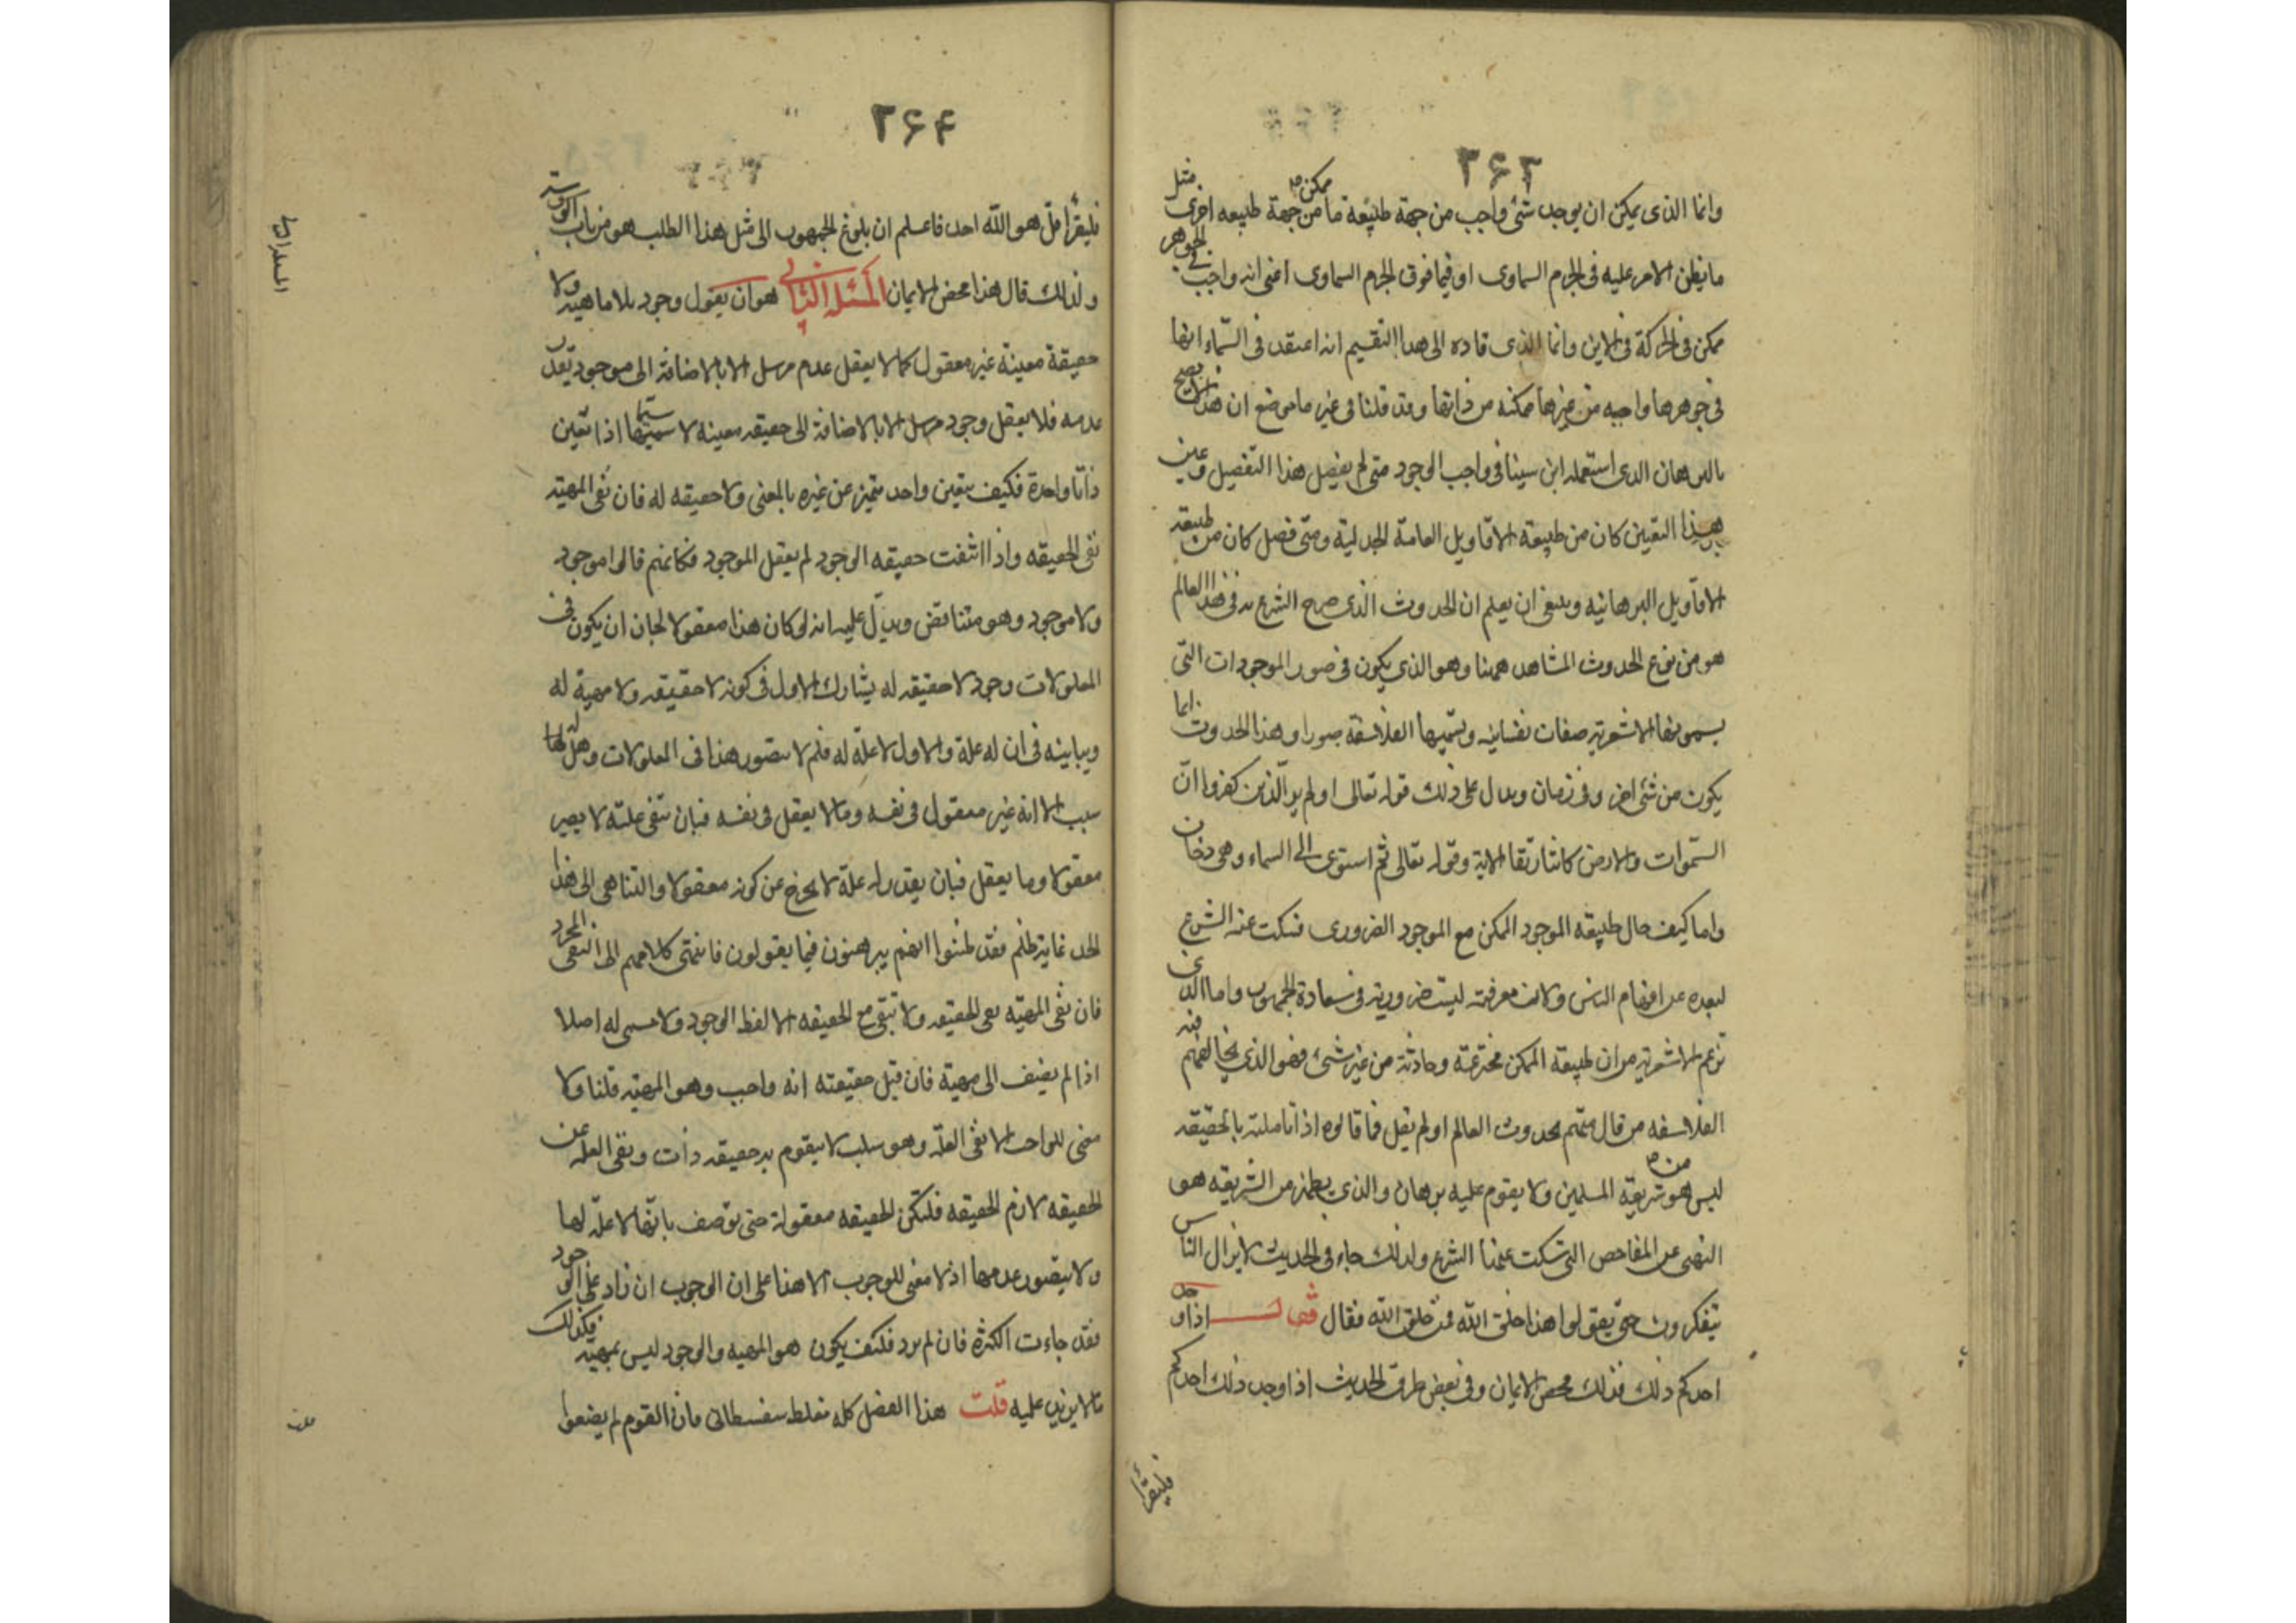 ۲۶۳
وانما الذى يمكن ان يوجد شئ واجب من جهة طبيعة ما ممكن من جهة طبيعه اخرى مثل
ما يظن الامر عليه فى الجرم السماوى او فيما فوق الجرم السماوى اعنى انه واجب فى الجوهر
ممكن فى الحركة فى الاين وانما الذى قاده الى هذا التقسيم انه اعتقد فى السّماء انها
فى جوهرها واجبه من غيرها ممكنه من ذاتها وقد قلنا فى غير ما موضع ان هذا لا يصح
بالبرهان الدى استعمله ابن سينا فى واجب الوجود متى لم يفصل هذا التفصيل وعين
هذا التعين كان من طبيعة الاقاويل العامة الجدلية ومتى فصل كان من طبيعه
الاقاويل البرهانيه وينبغى ان يعلم ان الحدوث الذى صرح الشرع به فى هذا العالم
هو من نوع الحدوث المشاهد ههنا وهو الذى يكون فى صور الموجودات التى
يسمونها الاشعرية صفات نفسانيه وتسميها الفلاسفة صورا وهذا الحدوث انما
يكون من شئ اخر وفى زمان ويدل على ذلك قوله تعالى او لم ير الّذين كفروا انّ
السّموات والارض كانتا رتقا الاية وقوله تعالى ثم استوى الى السماء وهى دخان
واما كيف حال طبيعه الموجود الممكن مع الموجود الضرورى فسكت عنه الشرع
لبعده عن افهام الناس ولان معرفته ليست ضرورية فى سعادة الجمهور واما الذى
تزعم الاشعرية من ان طبيعة الممكن مخترعة وحادثة من غير شئ فهو الذى يخالفهم فيه
الفلاسفه من قال منهم بحدوث العالم او لم يقل فما قالوه اذا تاملته بالحقيقه
ليس هو من شريعة المسلمين ولا يقوم عليه برهان والذى يظهر من الشريعه هو
النهى عن المفاحص التى سكت عنها الشرع ولذلك جاء فى الحديث لا يزال الناس
يتفكرون حتى يقولوا هذا خلق الله فمن خلق الله فقال قال اذا وجد
احدكم ذلك فذلك محض الايمان وفى بعض طرق الحديث اذا وجد ذلك احدكم
فليقرأ
۲۶۴
فليقرأ قل هو الله احد فاعلم ان بلوغ الجمهور الى مثل هذا الطلب هو من باب الوسوسة
ولذلك قال هذا محض الايمان المسئلة الثانى هو ان يقول وجود بلا ماهية ولا
حقيقة معينة غير معقول كما لا يعقل عدم مرسل الا بالاضافة الى موجود يقدر
عدمه فلا يعقل وجود مرسل الا بالاضافة الى حقيقه معينه لا سيما اذا تعين
ذاتا واحدة فكيف يتعين واحد متميز عن غيره بالمعنى ولا حقيقه له فان نفى المهيّه
نفى الحقيقه واذا انتفت حقيقه الوجود لم يعقل الموجود فكانهم قالوا موجود
ولا موجود وهو متناقض ويدلّ عليه انه لو كان هذا معقولا لجاز ان يكون فى
المعلولات وجود لا حقيقه له يشارك الاول فى كونه لا حقيقه ولا مهية له
ويباينه فى ان له علة والاول لا علّة له فلم لا يتصور هذا فى المعلولات وهل لها
سبب الا انه غير معقول فى نفسه وما لا يعقل فى نفسه فبان تنفى علته لا يصير
معقولا وما يعقل فبان يقدر له علة لا يخرج عن كونه معقولا والتناهى الى هذا
الحد غاية ظلم فقد ظنوا انهم يبرهنون فيما يقولون فانتهى كلامهم الى النفى المجرد
فان نفى المهيّه نفى للحقيقه ولا تبقى مع الحقيقه الا لفظ الوجود ولا مسمى له اصلا
اذا لم يضف الى مهية فان قيل حقيقته انه واجب وهو المهيّه قلنا ولا
معنى للواجب الا نفى العلّه وهو سلب لا يتقوم به حقيقه ذات ونفى العله عن
الحقيقه لازم الحقيقه فلتكن الحقيقه معقولة حتى توصف بانها لا علّة لها
ولا يتصور عدمها اذ لا معنى للوجوب الا هذا على ان الوجوب ان زاد على الوجود
فقد جاءت الكثرة فان لم يزد فكيف يكون هو المهيه والوجود ليس بمهيّه فكذلك
ما لا يزيد عليه قلت هذا الفصل كله مغلط سفسطائى فان القوم لم يضعوا